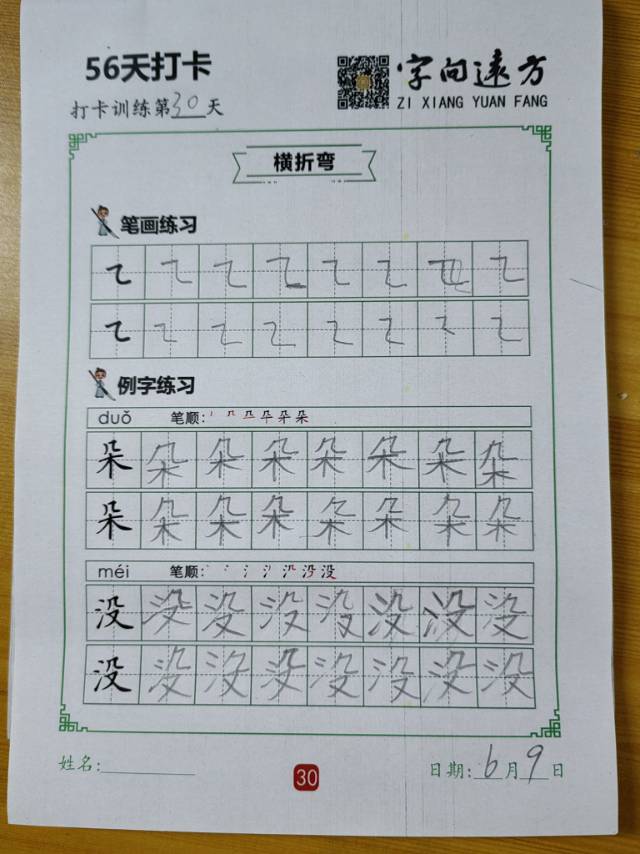 56天打卡
字向远方
打卡训练第30天
ZI XIANG YUAN FANG
横折弯
笔画练习
㇍ ㇍ ㇍ ㇍ ㇍ ㇍ ㇍ ㇍
㇍ ㇍ ㇍ ㇍ ㇍ ㇍ ㇍ ㇍
例字练习
duǒ 笔顺:
朵 朵 朵 朵 朵 朵 朵 朵
朵 朵 朵 朵 朵 朵 朵 朵
méi 笔顺:
没 没 没 没 没 没 没 没
没 没 没 没 没 没 没 没
姓名:
30
日期: 6月9日